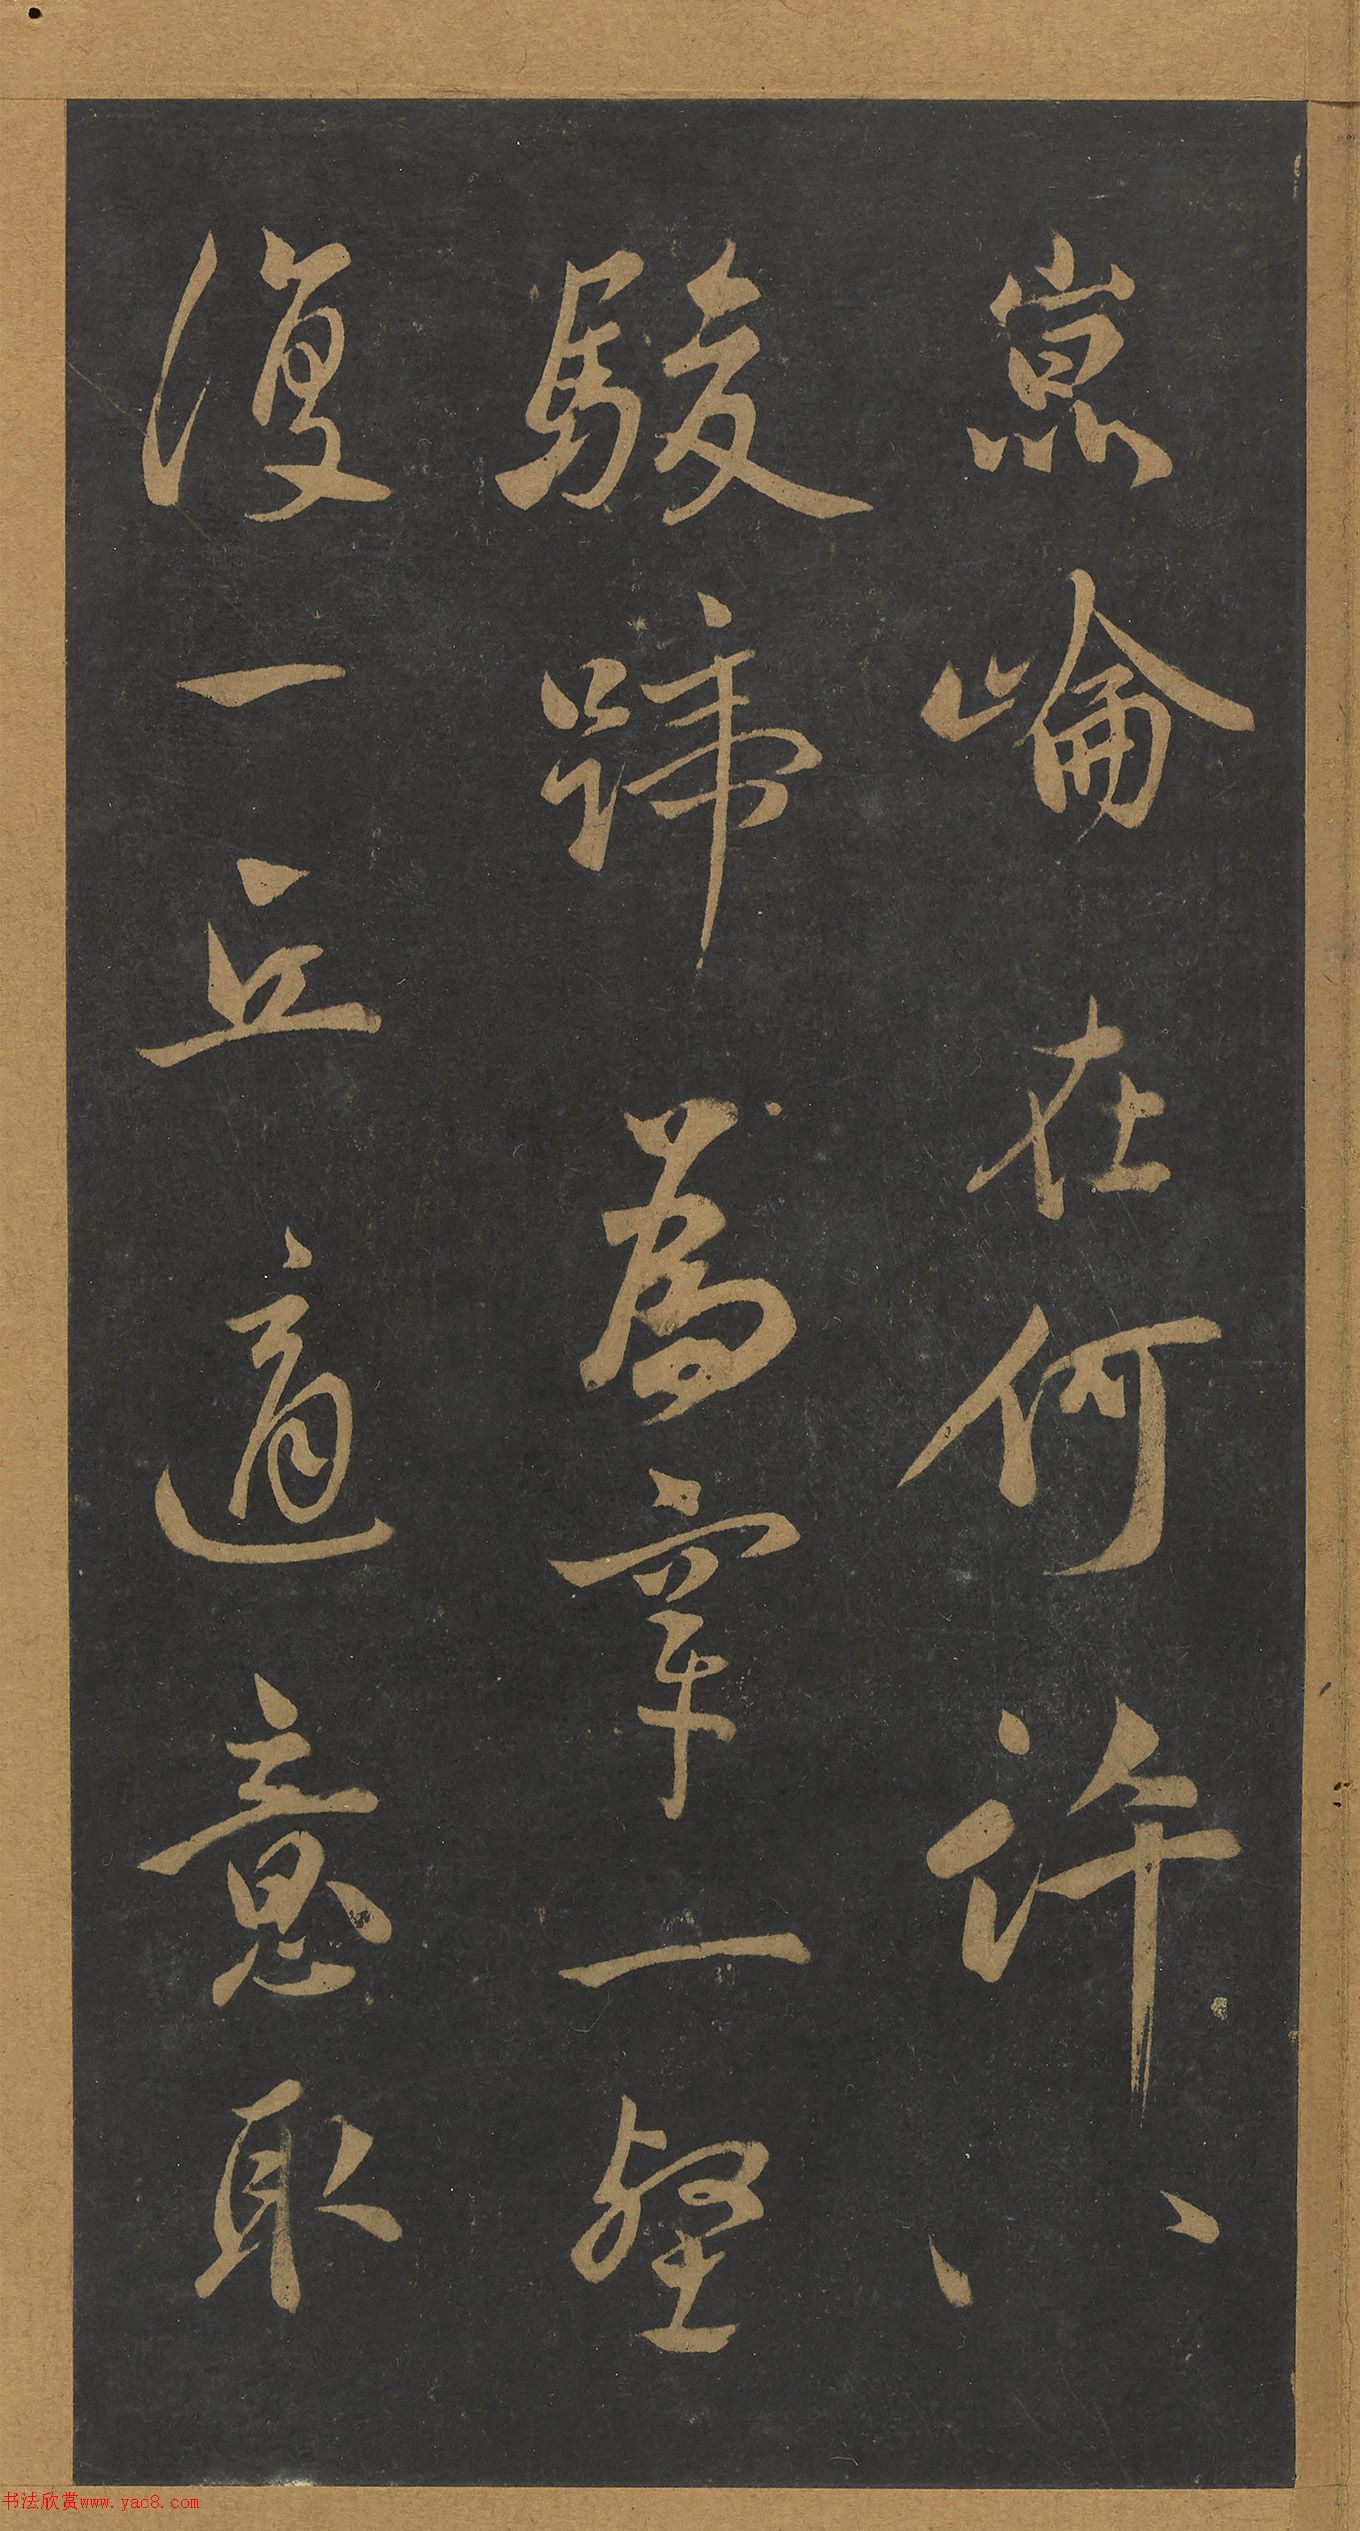 崑崙在何許八
駿蹄爲穿一壑
復一丘適意取
书法欣赏www.yac8.com